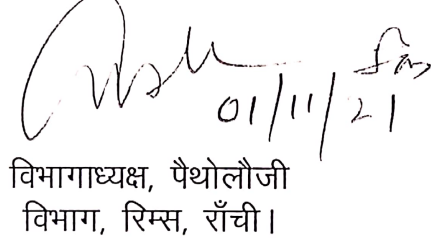 01/11/21
विभागाध्यक्ष, पैथोलौजी
विभाग, रिम्स, राँची।